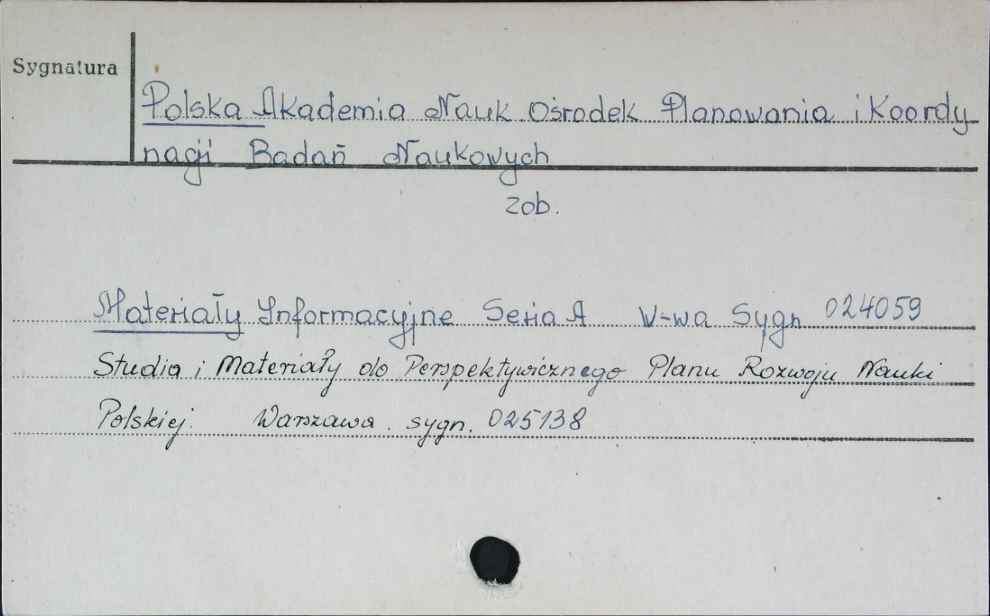 Sygnatura
Polska Akademia Nauk Ośrodek Planowania i Koordy
nacji Badań Naukowych
zob.
Materiały Informacyjne Seria A W-wa Sygn 024059
Studia i Materiały do Perspektywicznego Planu Rozwoju Nauki
Polskiej. Warszawa. sygn. 025138